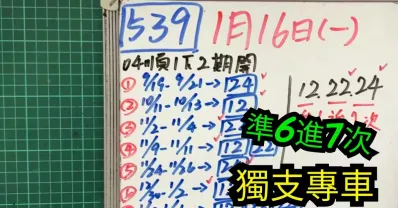 539 1月16日(一)
04順1下2期開
① 9/19-9/21→24
② 10/11-10/13→12
③ 11/2-11/4→2
④ 11/9-11/11→12 22
⑤ 11/24-11/26→2
12/30-1/2→
12.22.24
準6進7次
獨支專車